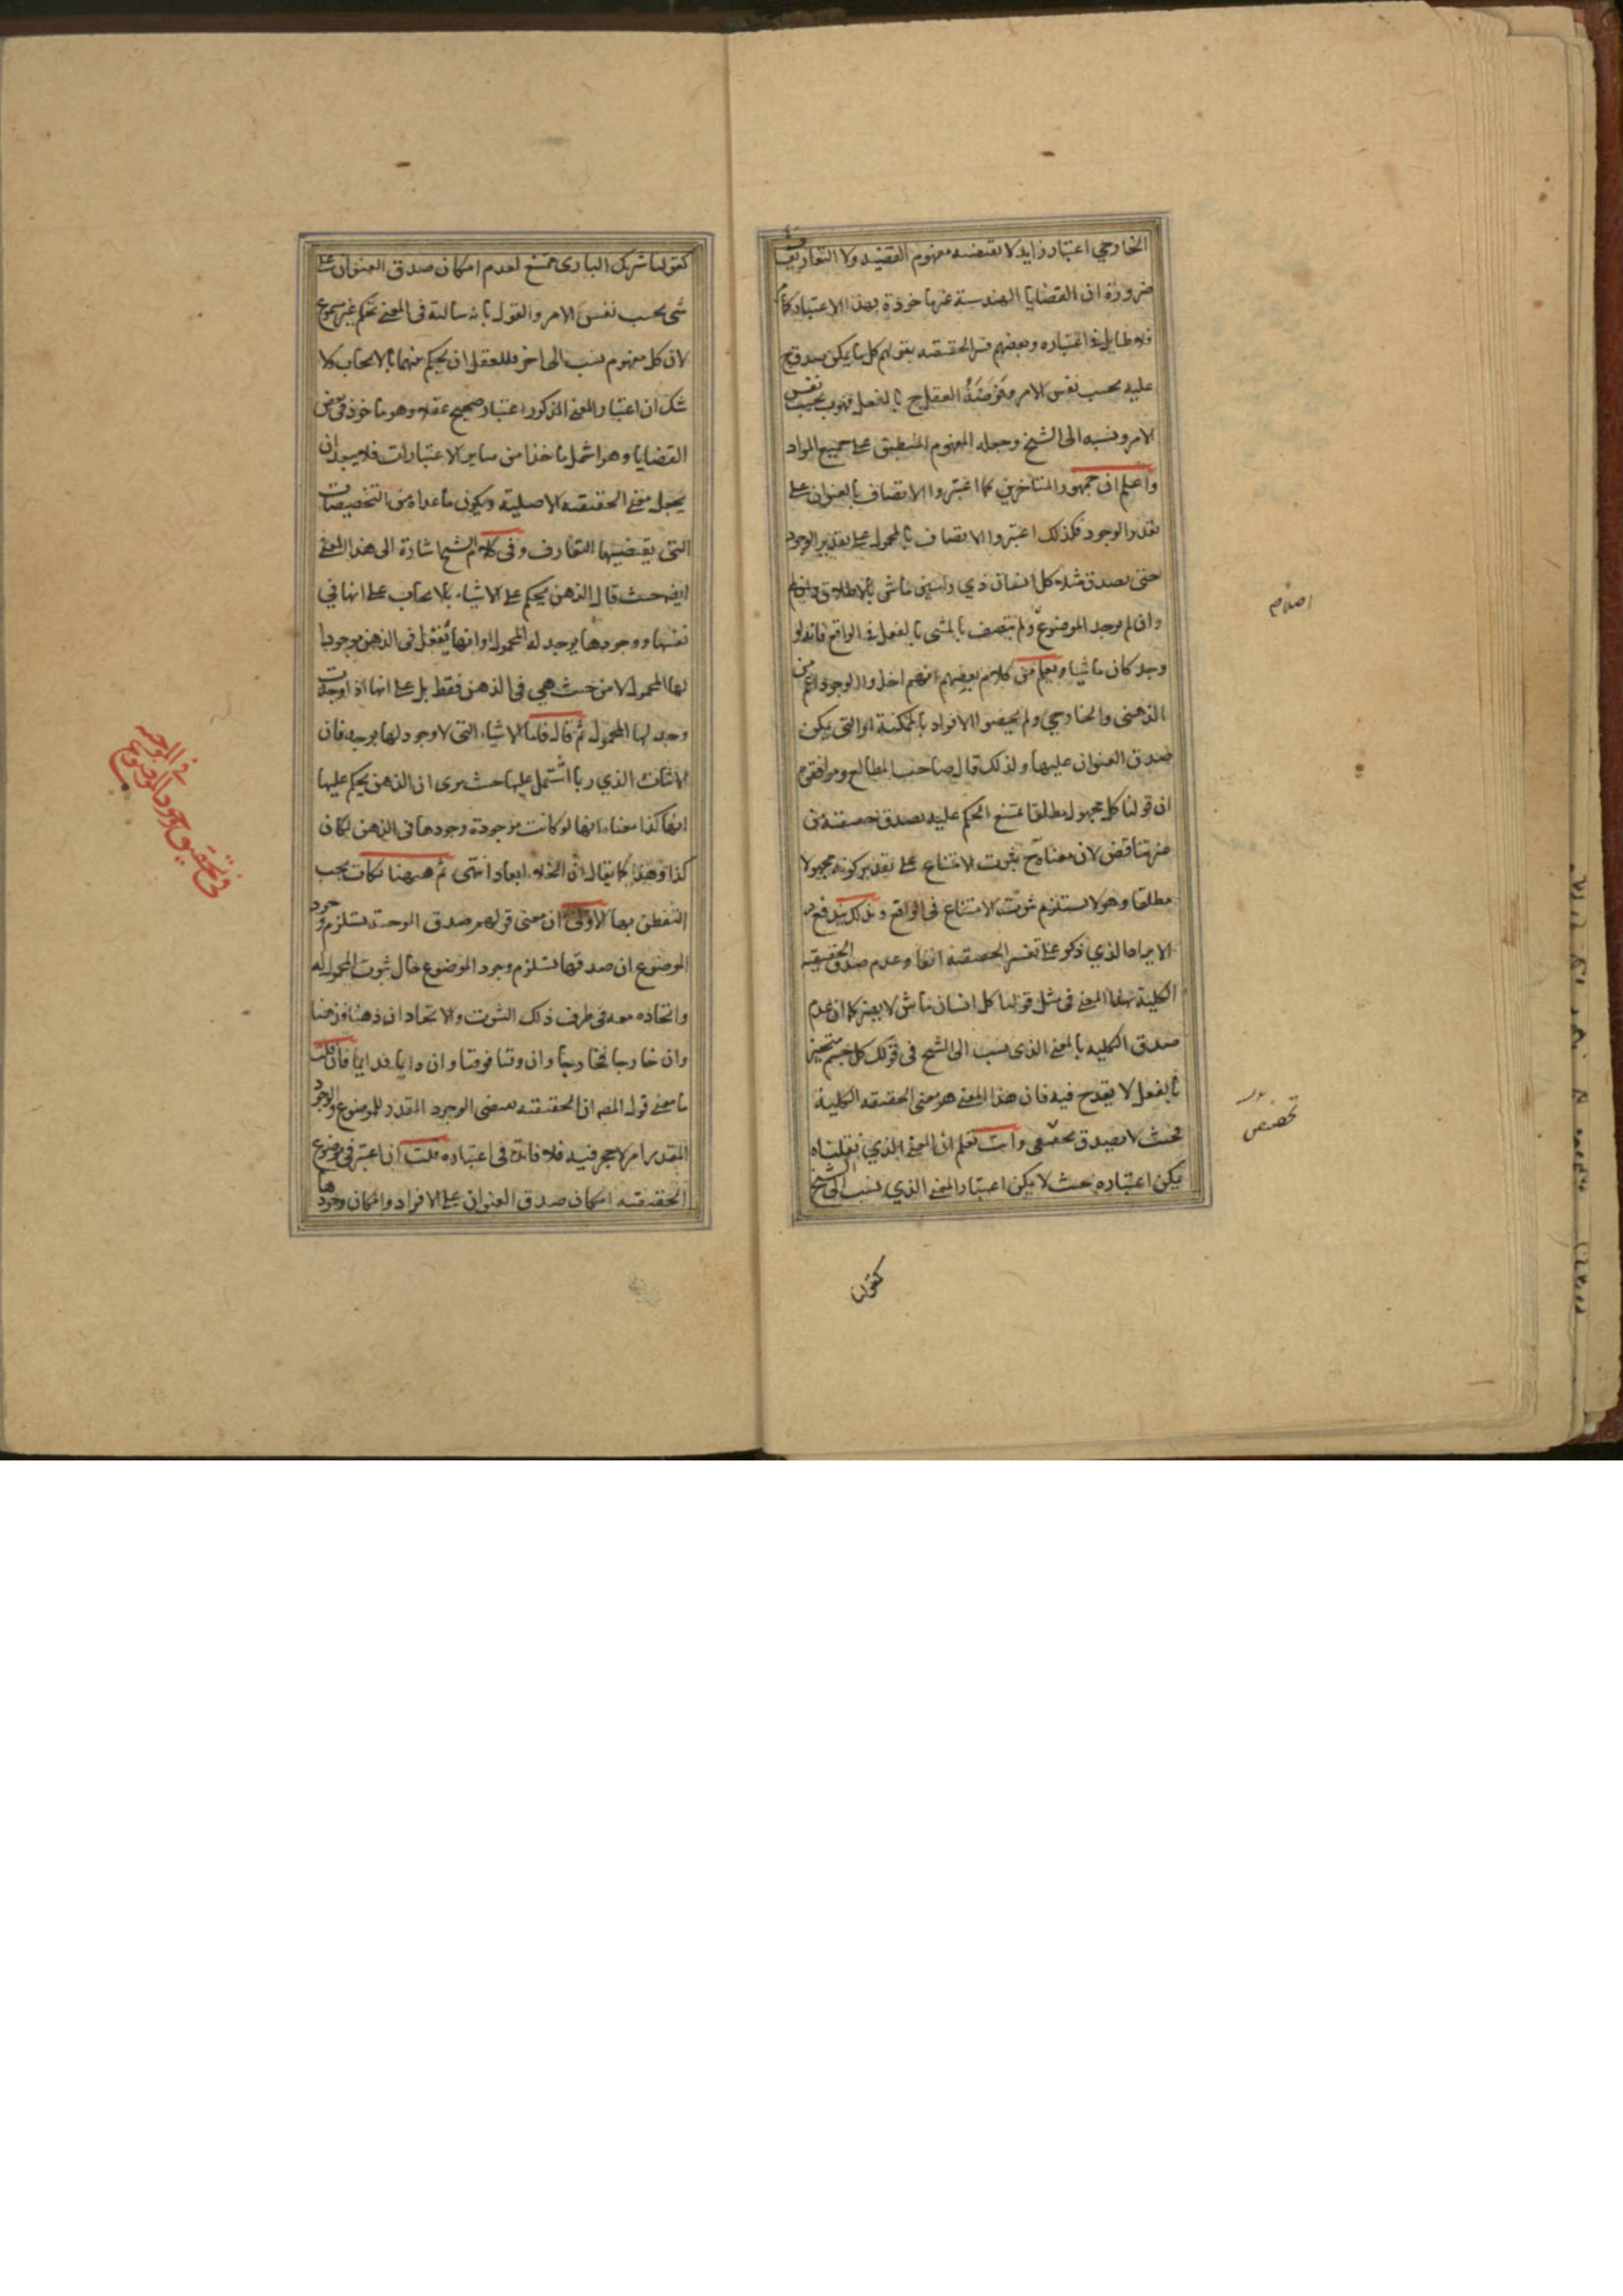 الخارجي اعتبار زايد لا يقتضيه مفهوم القضيه ولا التعارف
ضرورة ان القضايا الهندسية غير ماخوذة بهذا الاعتبار
فلا طايل في اعتباره وبعضهم فسر الحقيقيه بقولهم كل ما يمكن صدق ج
عليه بحسب نفس الامر وفرضه العقل ج بالفعل فهو ب بحسب نفس
الامر ونسبه الى الشيخ وجعله المفهوم المنطبق على جميع المواد
واعلم ان جمهور المتاخرين كما اعتبروا الاتصاف بالعنوان على
تقدير الوجود فكذلك اعتبروا الاتصاف بالمحمول على تقدير الوجود
حتى يصدق مثلا كل انسان ذي راسين ماش بالاطلاق
وان لم يوجد الموضوع ولم يتصف بالمشى بالفعل في الواقع فانه لو
وجد كان ماشيا ويعلم من كلام بعضهم انهم اخذوا الوجود اعم من
الذهني والخارجي ولم يخصوا الافراد بالممكنة او التي يمكن
صدق العنوان عليها ولذلك قال صاحب المطالع ومرافقوه
ان قولنا كل مجهول مطلقا يمتنع الحكم عليه يصدق حقيقة من
غير تناقض لان معناه ح ثبوت الامتناع على تقدير كونه مجهولا
مطلقا وهو لا يستلزم ثبوت الامتناع في الواقع وبذلك يندفع
الايراد الذي ذكر على تفسير الحقيقيه انفا وعدم صدق الحقيقيه
الكلية بهذا المعنى في مثل قولنا كل انسان ماش لا يضر كما ان عدم
صدق الكليه بالمعنى الذي نسب الى الشيخ في قولك كل جسم متحيز
بالفعل لا يقدح فيه فان هذا المعنى هو معنى الحقيقيه الكلية
فحيث لا يصدق تحقيقي وانت تعلم ان المعنى الذي نقلناه
يمكن اعتباره بحيث لا يمكن اعتبار المعنى الذي نسب الى الشيخ
كقولنا
تخصيص
كقولنا شريك الباري ممتنع لعدم امكان صدق العنوان على
شي بحسب نفس الامر والقول بانه سالبة في المعنى تحكم غير مسموع
لان كل مفهوم نسب الى اخر فللعقل ان يحكم منهما بالايجاب ولا
شك ان اعتبار المعنى المذكور اعتبار صحيح عقلا وهو ماخوذ في بعض
القضايا وهو اشمل ماخذا من ساير الاعتبارات فلا يبعد ان
يجعل معنى الحقيقيه الاصلية ويكون ما عداه من التخصيصات
التي يقتضيها التعارف وفي كلام الشيخ اشارة الى هذا المعنى
ايضا حيث قال الذهن يحكم على الاشياء بالايجاب على انها في
نفسها ووجودها يوجد له المحمول او انها تعقل في الذهن موجودا
لها المحمول لا من حيث هي في الذهن فقط بل على انها اذا وجدت
وجد لها المحمول ثم قال فاما الاشياء التي لا وجود لها بوجه فان
الاثبات الذي ربما اشتمل عليها حيث يرى ان الذهن يحكم عليها
انها كذا معناه انها لو كانت موجودة وجودها في الذهن لكان
كذا وهذا كما يقال ان الخلاء ابعاد انتهى ثم ههنا نكات يجب
التفطن بها الاولى ان معنى قولهم صدق الموجبة يستلزم وجود
الموضوع ان صدقها يستلزم وجود الموضوع حال ثبوت المحمول له
واتحاده معه في ظرف ذلك الثبوت والاتحاد ان ذهنا فذهنا
وان خارجا فخارجا وان وقتا فوقتا وان دايما فدايما فان قلت
ما معنى قول المص ان الحقيقيه تقتضي الوجود المقدر للموضوع والوجود
المقدر امر لا حجر فيه فلا فائدة في اعتباره قلت ان اعتبر في موضوع
الحقيقيه امكان صدق العنوان على الافراد وامكان وجودها
في تحقيق وجود الموضوع
في الموجبه